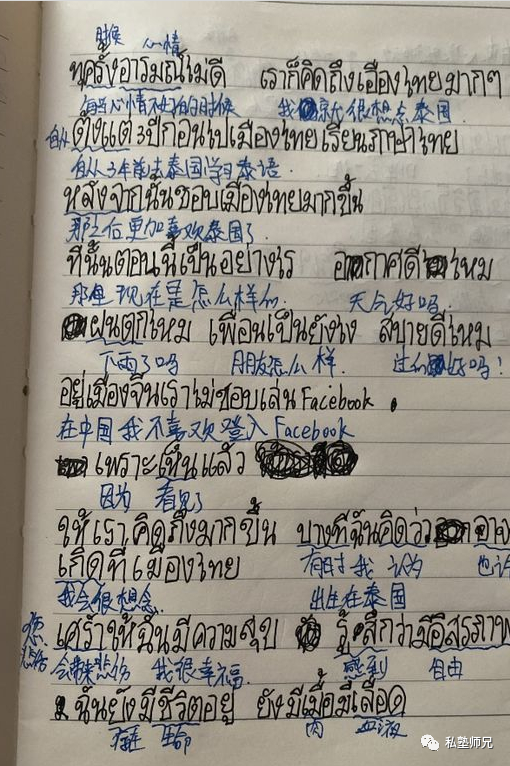 时候 心情
ทุครั้งอารมณ์ไม่ดี เราก็คิดถึงเมืองไทยมากๆ
每当心情不好的时候 我就很想去泰国
自从 ตั้งแต่ 3 ปีก่อนไปเมืองไทยเรียนภาษาไทย
自从3年前去泰国学习泰语
หลังจากนั้นชอบเมืองไทยมากขึ้น
那之后更加喜欢泰国了
ที่นั้นตอนนี้เป็นอย่างไร อากาศดีไหม
那里现在是怎么样的. 天气好吗.
ฝนตกไหม เพื่อนเป็นยังไง สบายดีไหม
下雨了吗 朋友怎么样. 过的好吗!
อยู่เมืองจีนเราไม่ชอบเล่น Facebook.
在中国我不喜欢登入 Facebook
เพราะเห็นแล้ว
因为 看见了
ให้เราคิดถึงมากขึ้น บางทีฉันคิดว่า อาจ
เกิดที่เมืองไทย 有时我 认为 也许
我会很想念. 出生在泰国
悲伤 เศร้าให้ฉันมีความสุข รู้สึกว่ามีอิสรภาพ
会带来悲伤 我很幸福. 感到 自由
ฉันยังมีชีวิตอยู่ ยังมีเนื้อมีเลือด
生命 肉 血液
私塾师兄